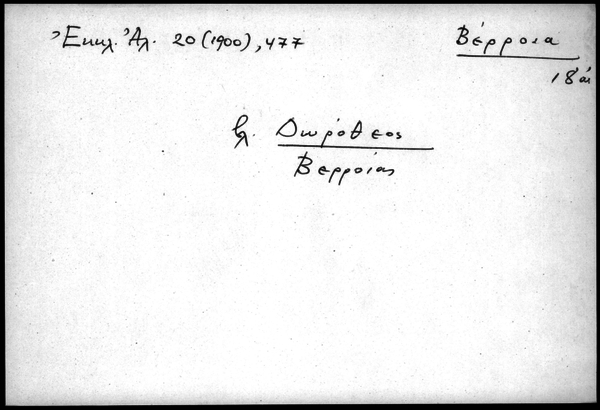 Ἐκκλ. Ἀλ. 20 (1900), 477
Βέρροια
18 αἰ
βλ. Δωρόθεος
Βερροίας